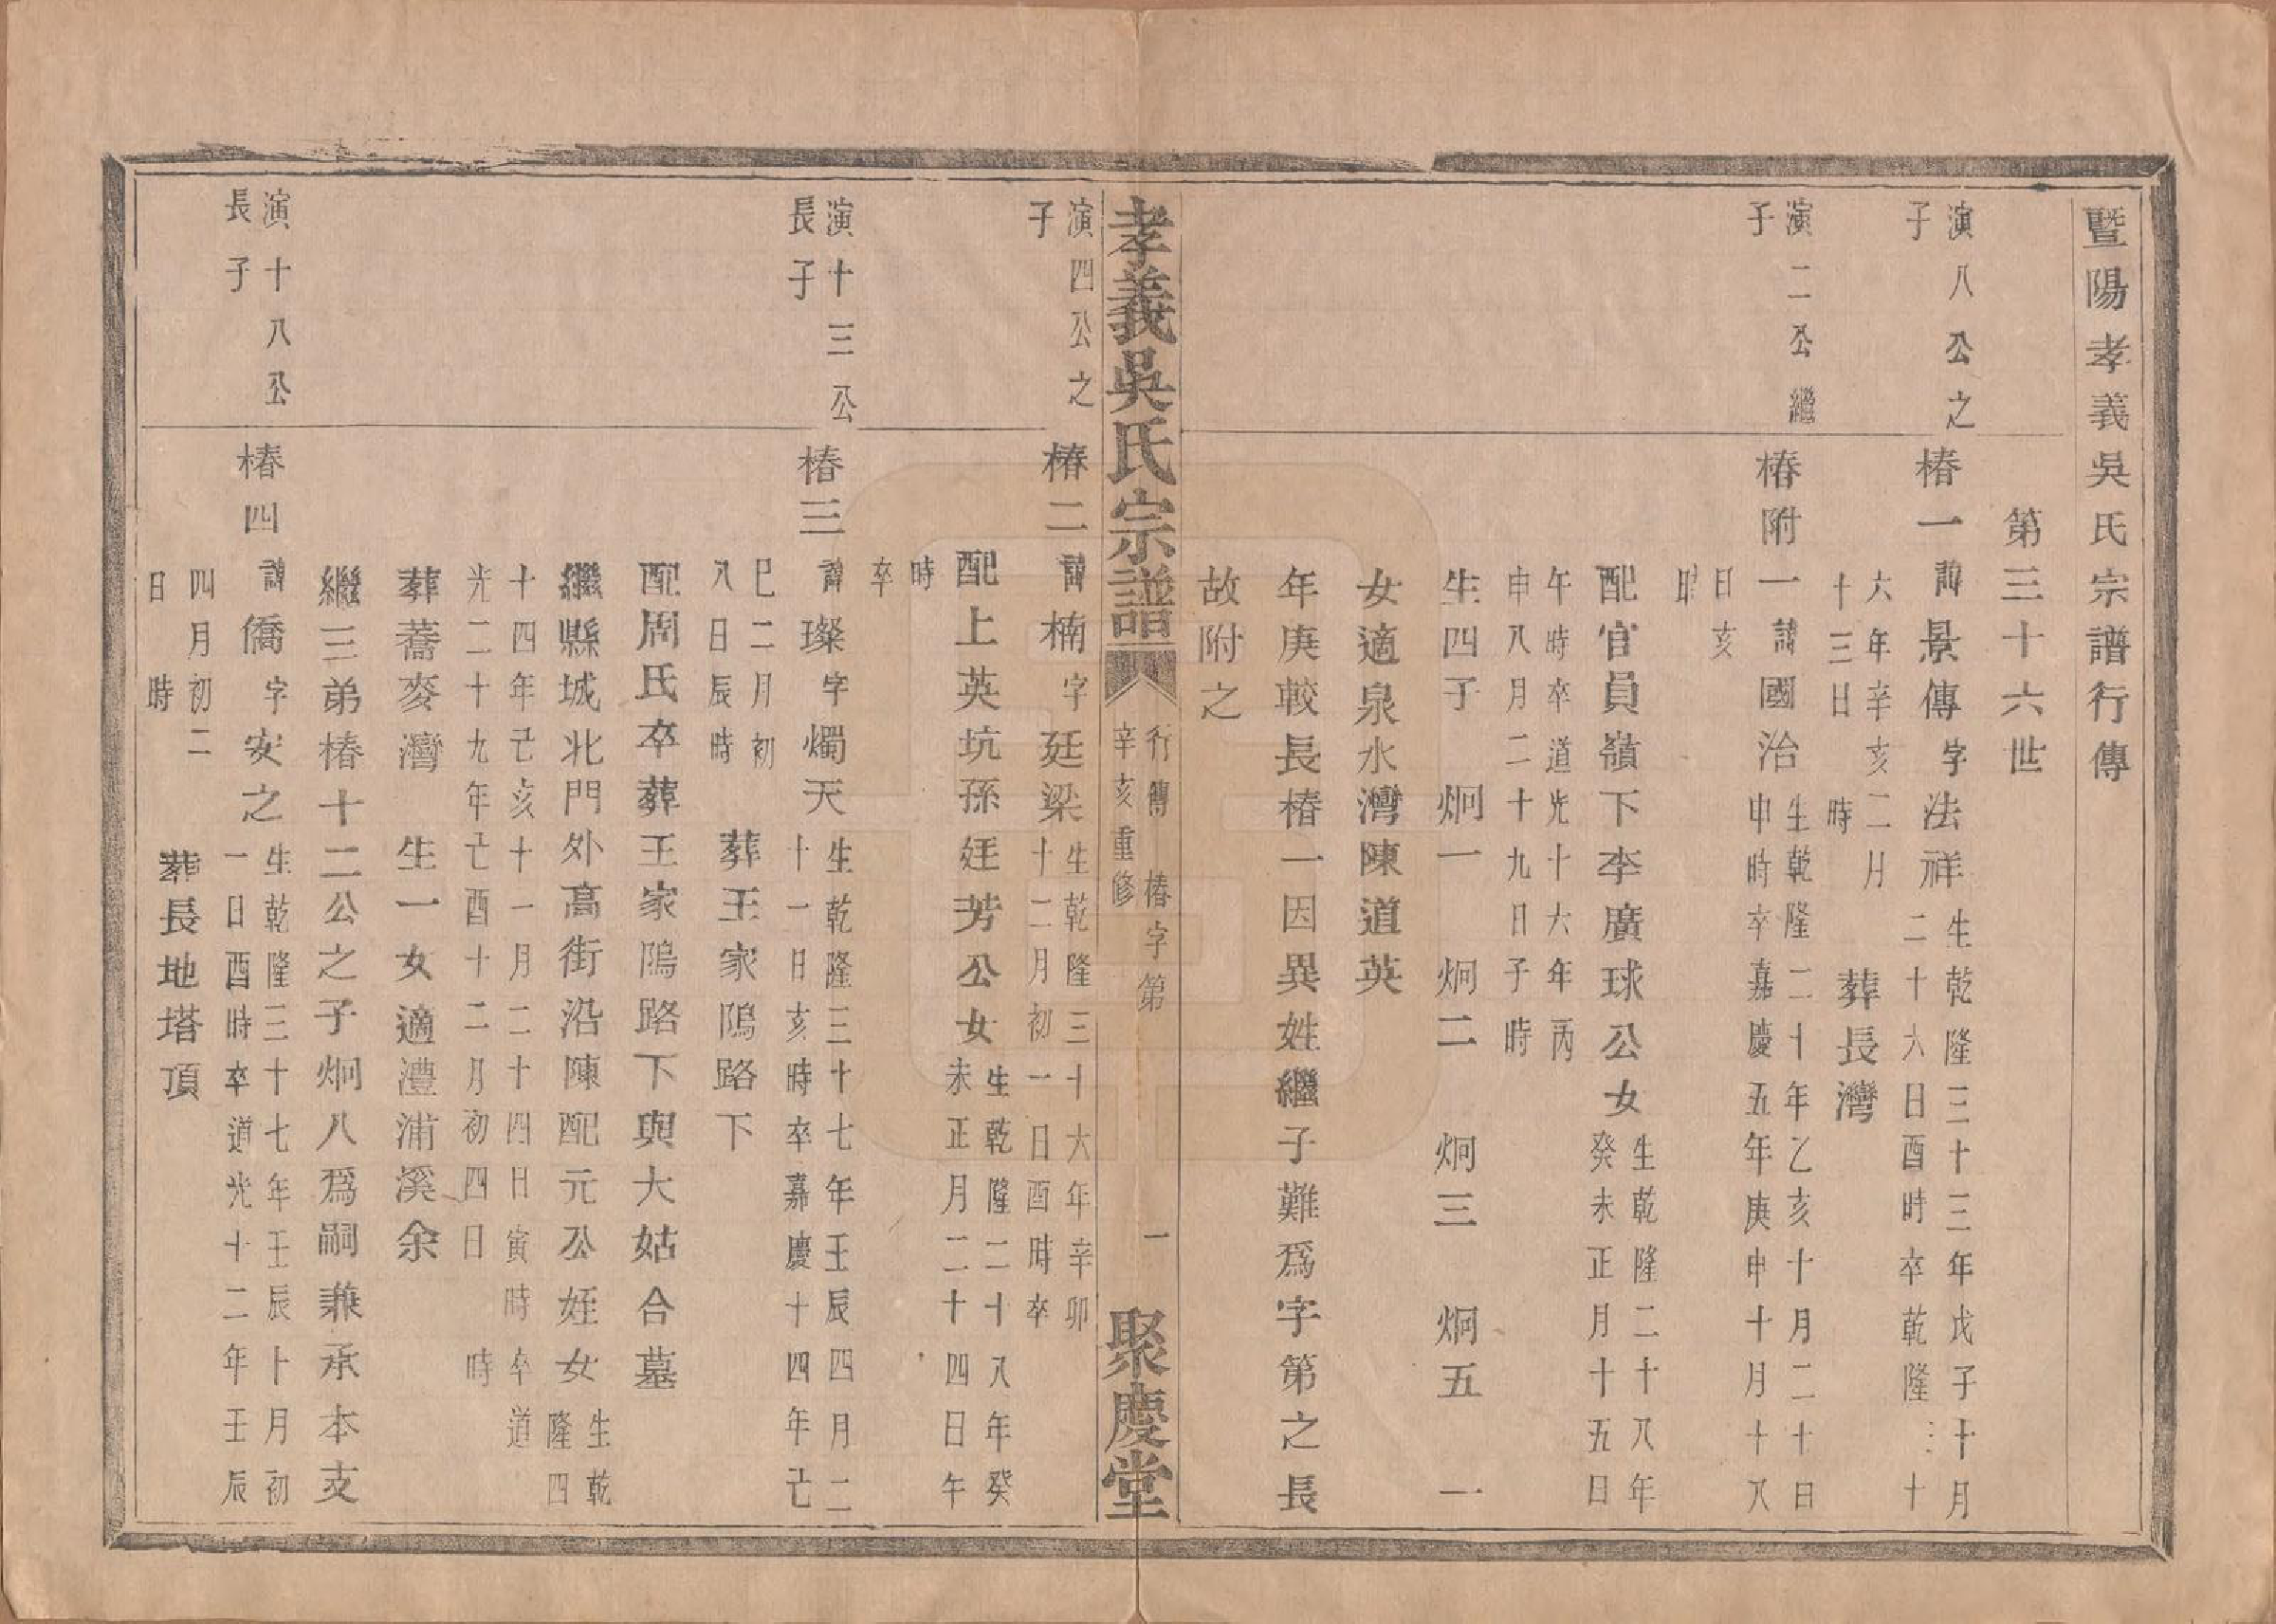 暨陽孝義吳氏宗譜行傳
第三十六世
演八公之
子
椿一諱景傳字法祥生乾隆三十三年戊子十月
二十六日酉時卒乾隆三十
六年辛亥二月
十三日 時
葬長灣
演二公繼
子
椿附一諱國治生乾隆二十年乙亥十月二十日
申時卒嘉慶五年庚申十月十八
日亥
時
配官員嶺下李廣球公女生乾隆二十八年
癸未正月十五日
午時卒道光十六年丙
申八月二十九日子時
生四子 炯一 炯二 炯三 炯五 一
女適泉水灣陳道英
年庚較長椿一因異姓繼子難爲字第之長
故附之
孝義吳氏宗譜
行傳 椿字第 一
辛亥重修
聚慶堂
演四公之
子
椿二諱楠字廷梁生乾隆三十六年辛卯
十二月初一日酉時卒
配上英坑孫廷芳公女生乾隆二十八年癸
未正月二十四日午
時
卒
演十三公
長子
椿三諱璨字燭天生乾隆三十七年壬辰四月二
十一日亥時卒嘉慶十四年己
巳二月初
八日辰時
葬王家隖路下
配周氏卒葬王家隖路下與大姑合墓
繼縣城北門外高街沿陳配元公姪女生乾
隆四
十四年己亥十一月二十四日寅時卒道
光二十九年己酉十二月初四日 時
葬蕎麥灣 生一女適澧浦溪余
繼三弟椿十二公之子炯八爲嗣兼承本支
演十八公
長子
椿四諱僑字安之生乾隆三十七年壬辰十月初
一日酉時卒道光十二年壬辰
四月初二
日 時
葬長地塔頂